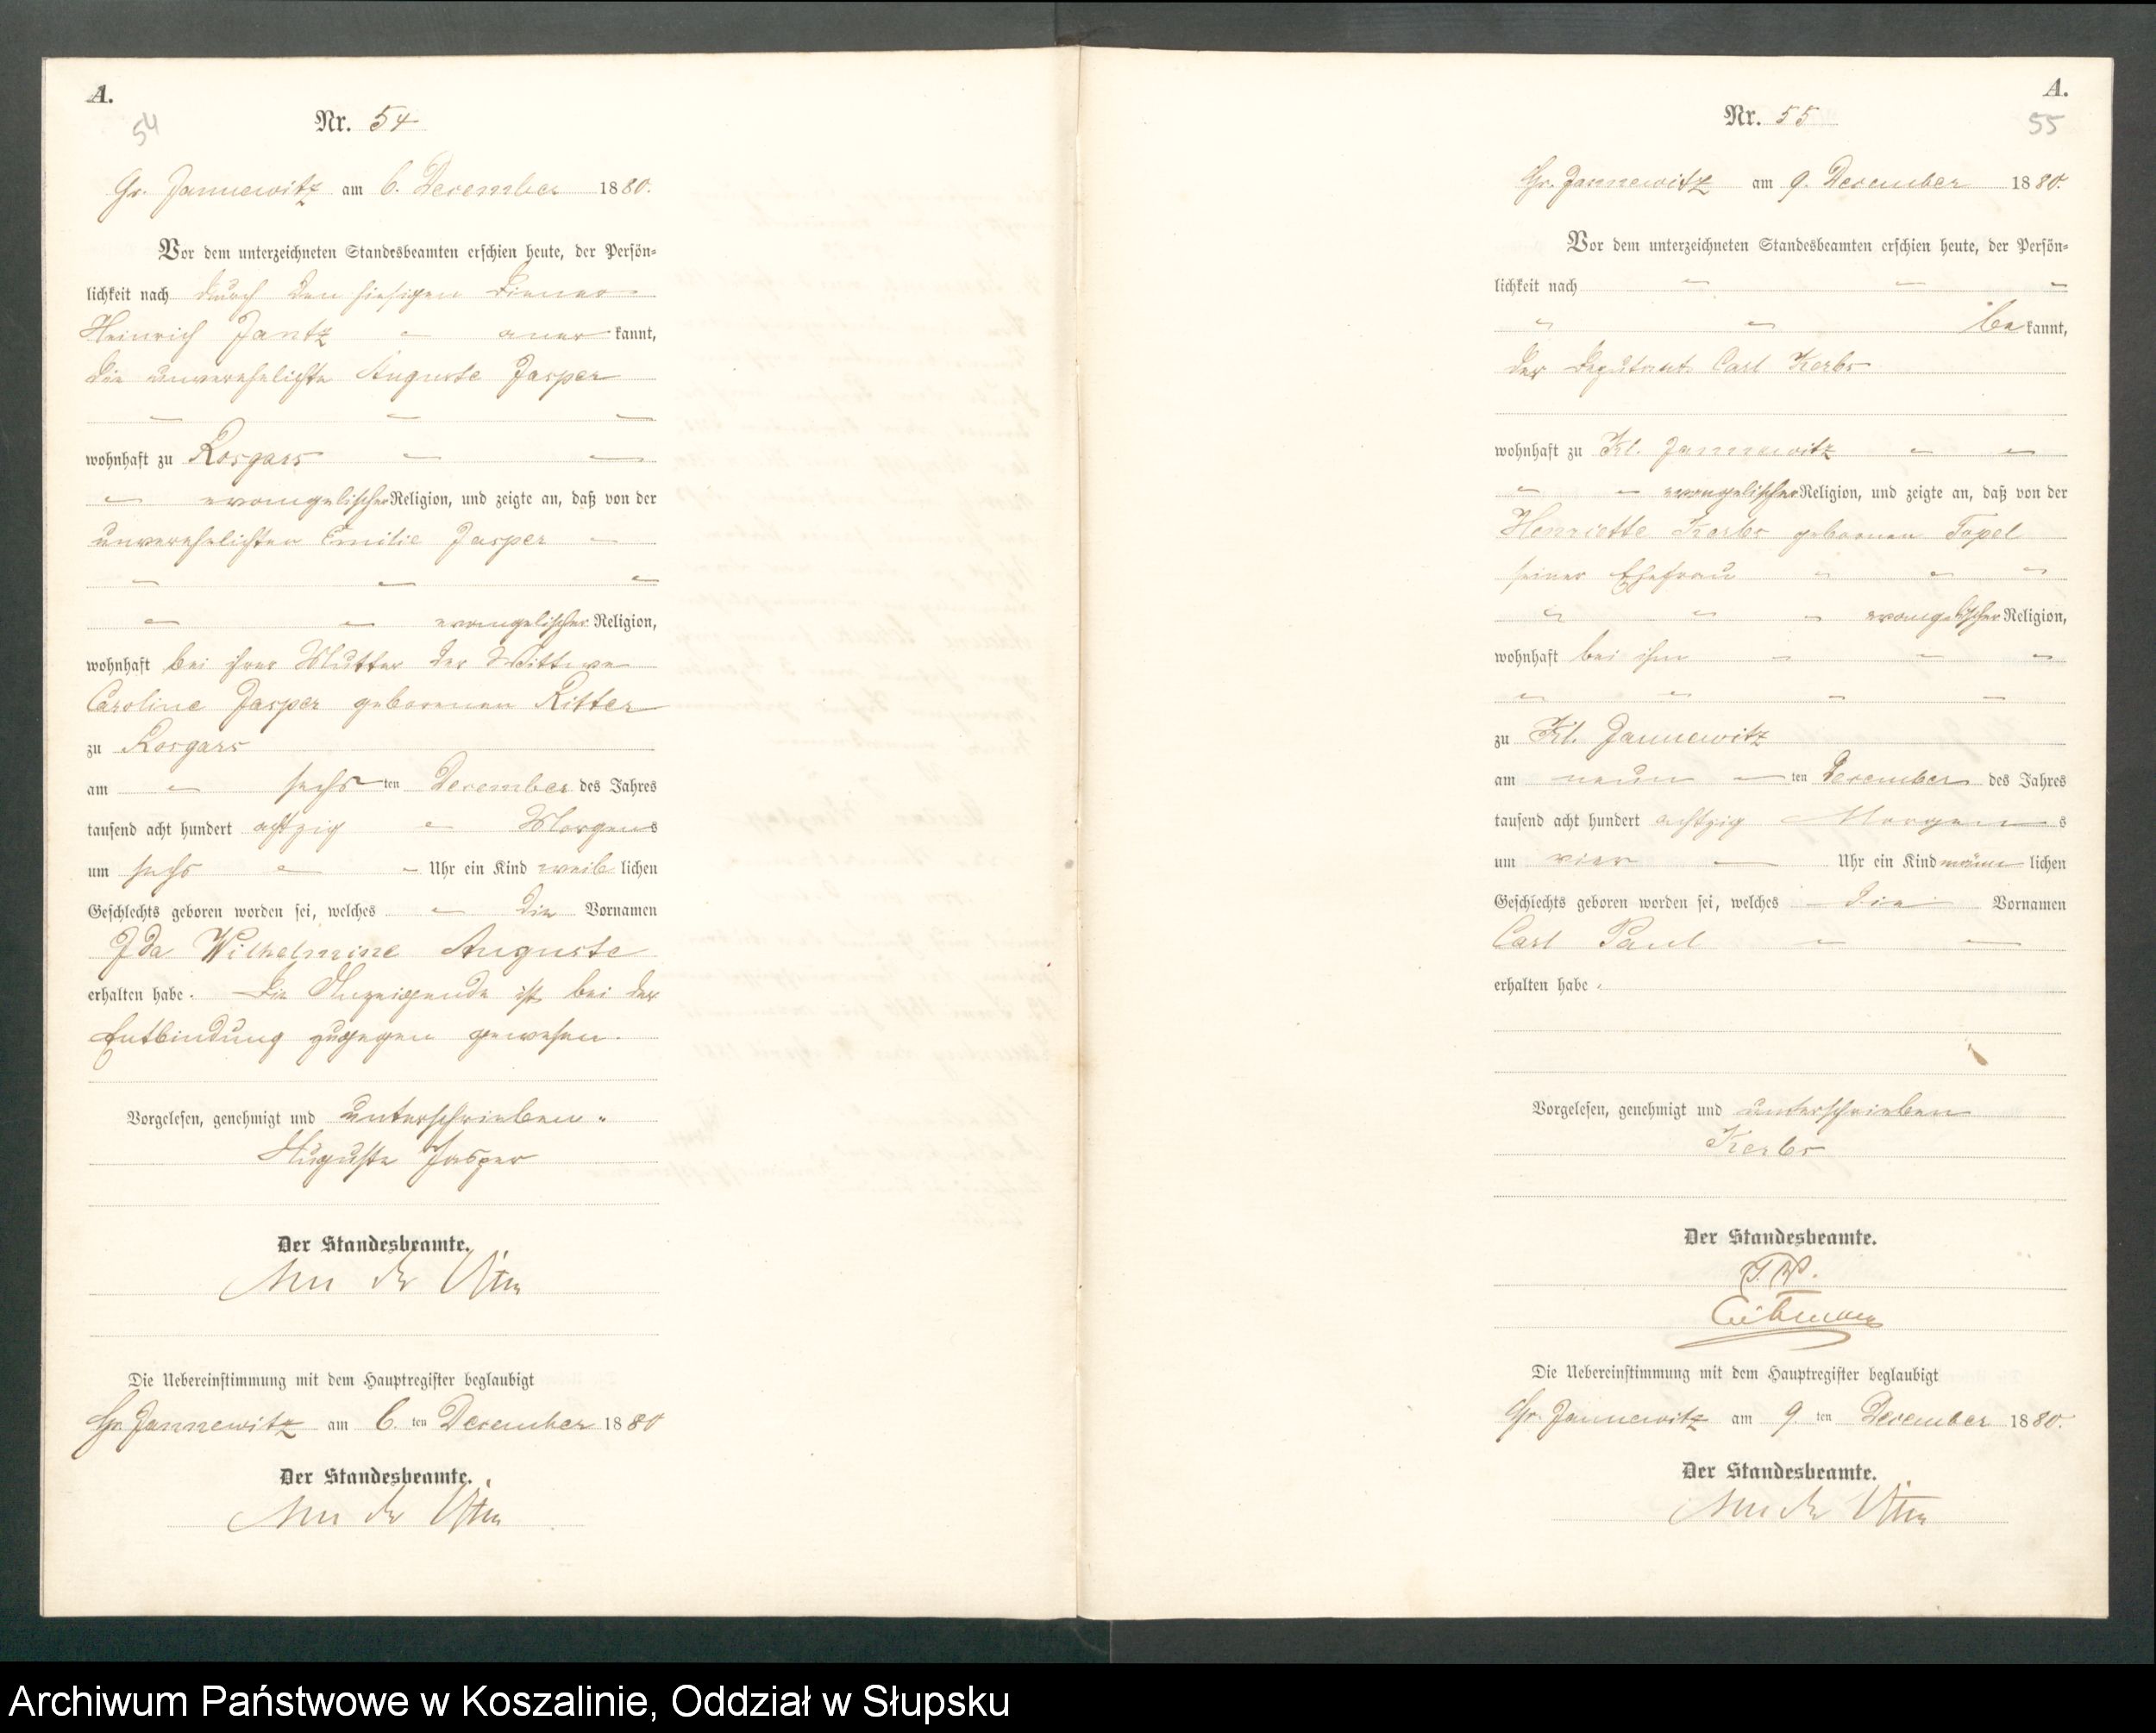 A.
54
Nr. 54
Gr. Jannewitz am 6. December 1880.
Vor dem unterzeichneten Standesbeamten erschien heute, der Persön-
lichkeit nach durch den hiesigen Diener
Heinrich Jantz anerkannt,
die unverehelichte Auguste Jasper
wohnhaft zu Rosgars
evangelischer Religion, und zeigte an, daß von der
unverehelichten Emilie Jasper
evangelischer Religion,
wohnhaft bei ihrer Mutter der Wittwe
Caroline Jasper geborenen Ritter
zu Rosgars
am sechsten December des Jahres
tausend acht hundert achtzig Morgens
um sechs Uhr ein Kind weiblichen
Geschlechts geboren worden sei, welches die Vornamen
Ida Wilhelmine Auguste
erhalten habe. Die Anzeigende ist bei der
Entbindung zugegen gewesen.
Vorgelesen, genehmigt und unterschrieben.
Auguste Jasper
Der Standesbeamte.
Die Uebereinstimmung mit dem Hauptregister beglaubigt
Gr. Jannewitz am 6. ten December 1880
Der Standesbeamte.
A.
55
Nr. 55
Gr. Jannewitz am 9. December 1880.
Vor dem unterzeichneten Standesbeamten erschien heute, der Persön-
lichkeit nach
bekannt,
der Deputant Carl Kerbs
wohnhaft zu Kl. Jannewitz
evangelischer Religion, und zeigte an, daß von der
Henriette Kerbs geborenen Topel
seiner Ehefrau
evangelischer Religion,
wohnhaft bei ihm
zu Kl. Jannewitz
am neunten December des Jahres
tausend acht hundert achtzig Morgens
um vier Uhr ein Kind männlichen
Geschlechts geboren worden sei, welches die Vornamen
Carl Paul
erhalten habe.
Vorgelesen, genehmigt und unterschrieben
Kerbs
Der Standesbeamte.
Die Uebereinstimmung mit dem Hauptregister beglaubigt
Gr. Jannewitz am 9. ten December 1880.
Der Standesbeamte.
Archiwum Państwowe w Koszalinie, Oddział w Słupsku